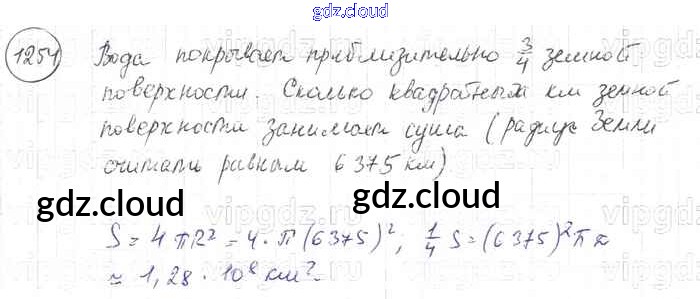 gdz.cloud
1254 Вода покрывает приблизительно 3/4 земной
поверхности. Сколько квадратных км земной
поверхности занимает суша (радиус Земли
считать равным 6375 км)
gdz.cloud gdz.cloud
S = 4πR² = 4·π(6375)²; 1/4 S = (6375)²π ≈
≈ 1,28·10⁸ км².